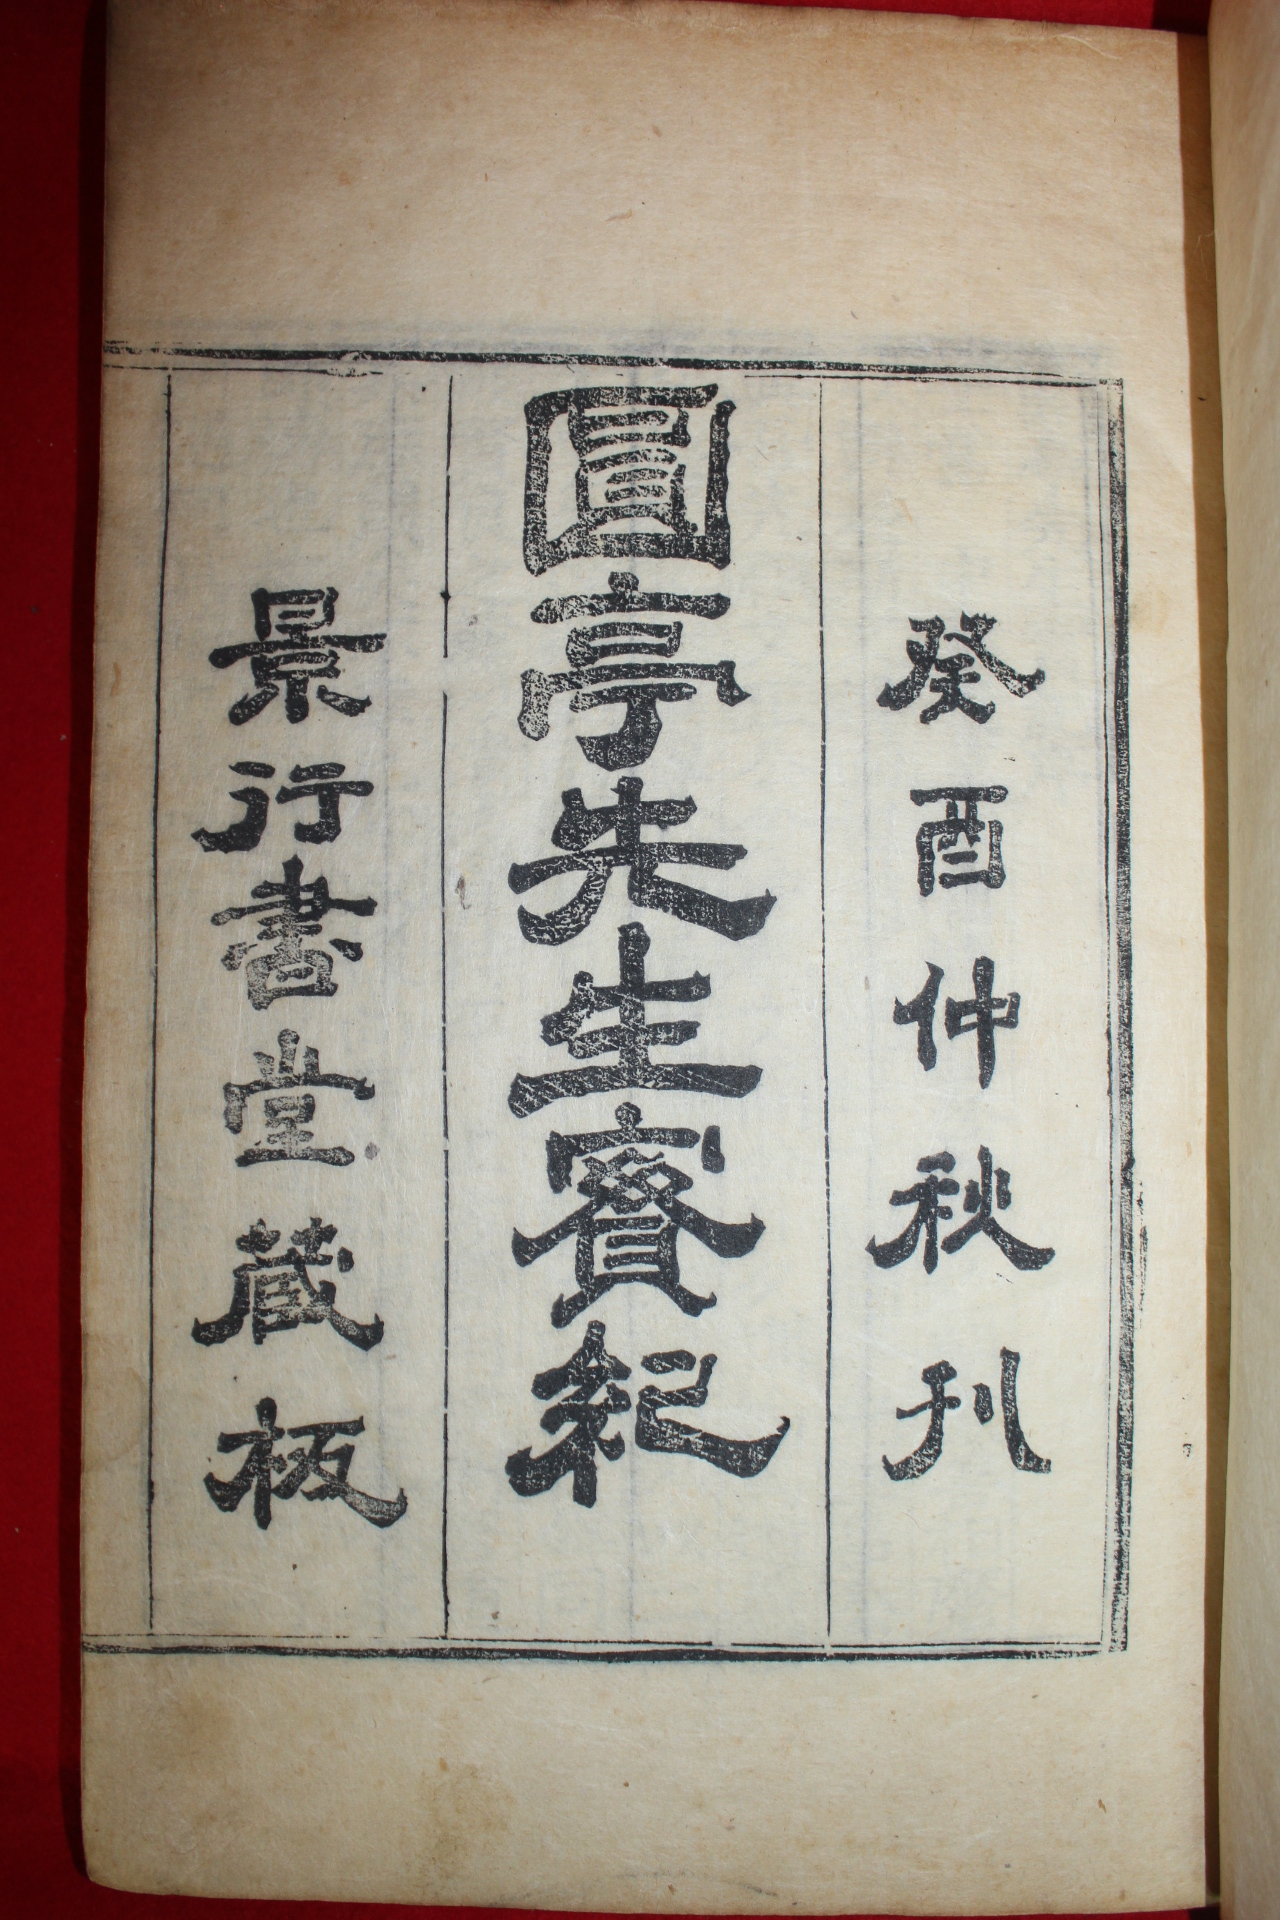 癸酉仲秋刊
圓亭先生實紀
景行書堂藏板